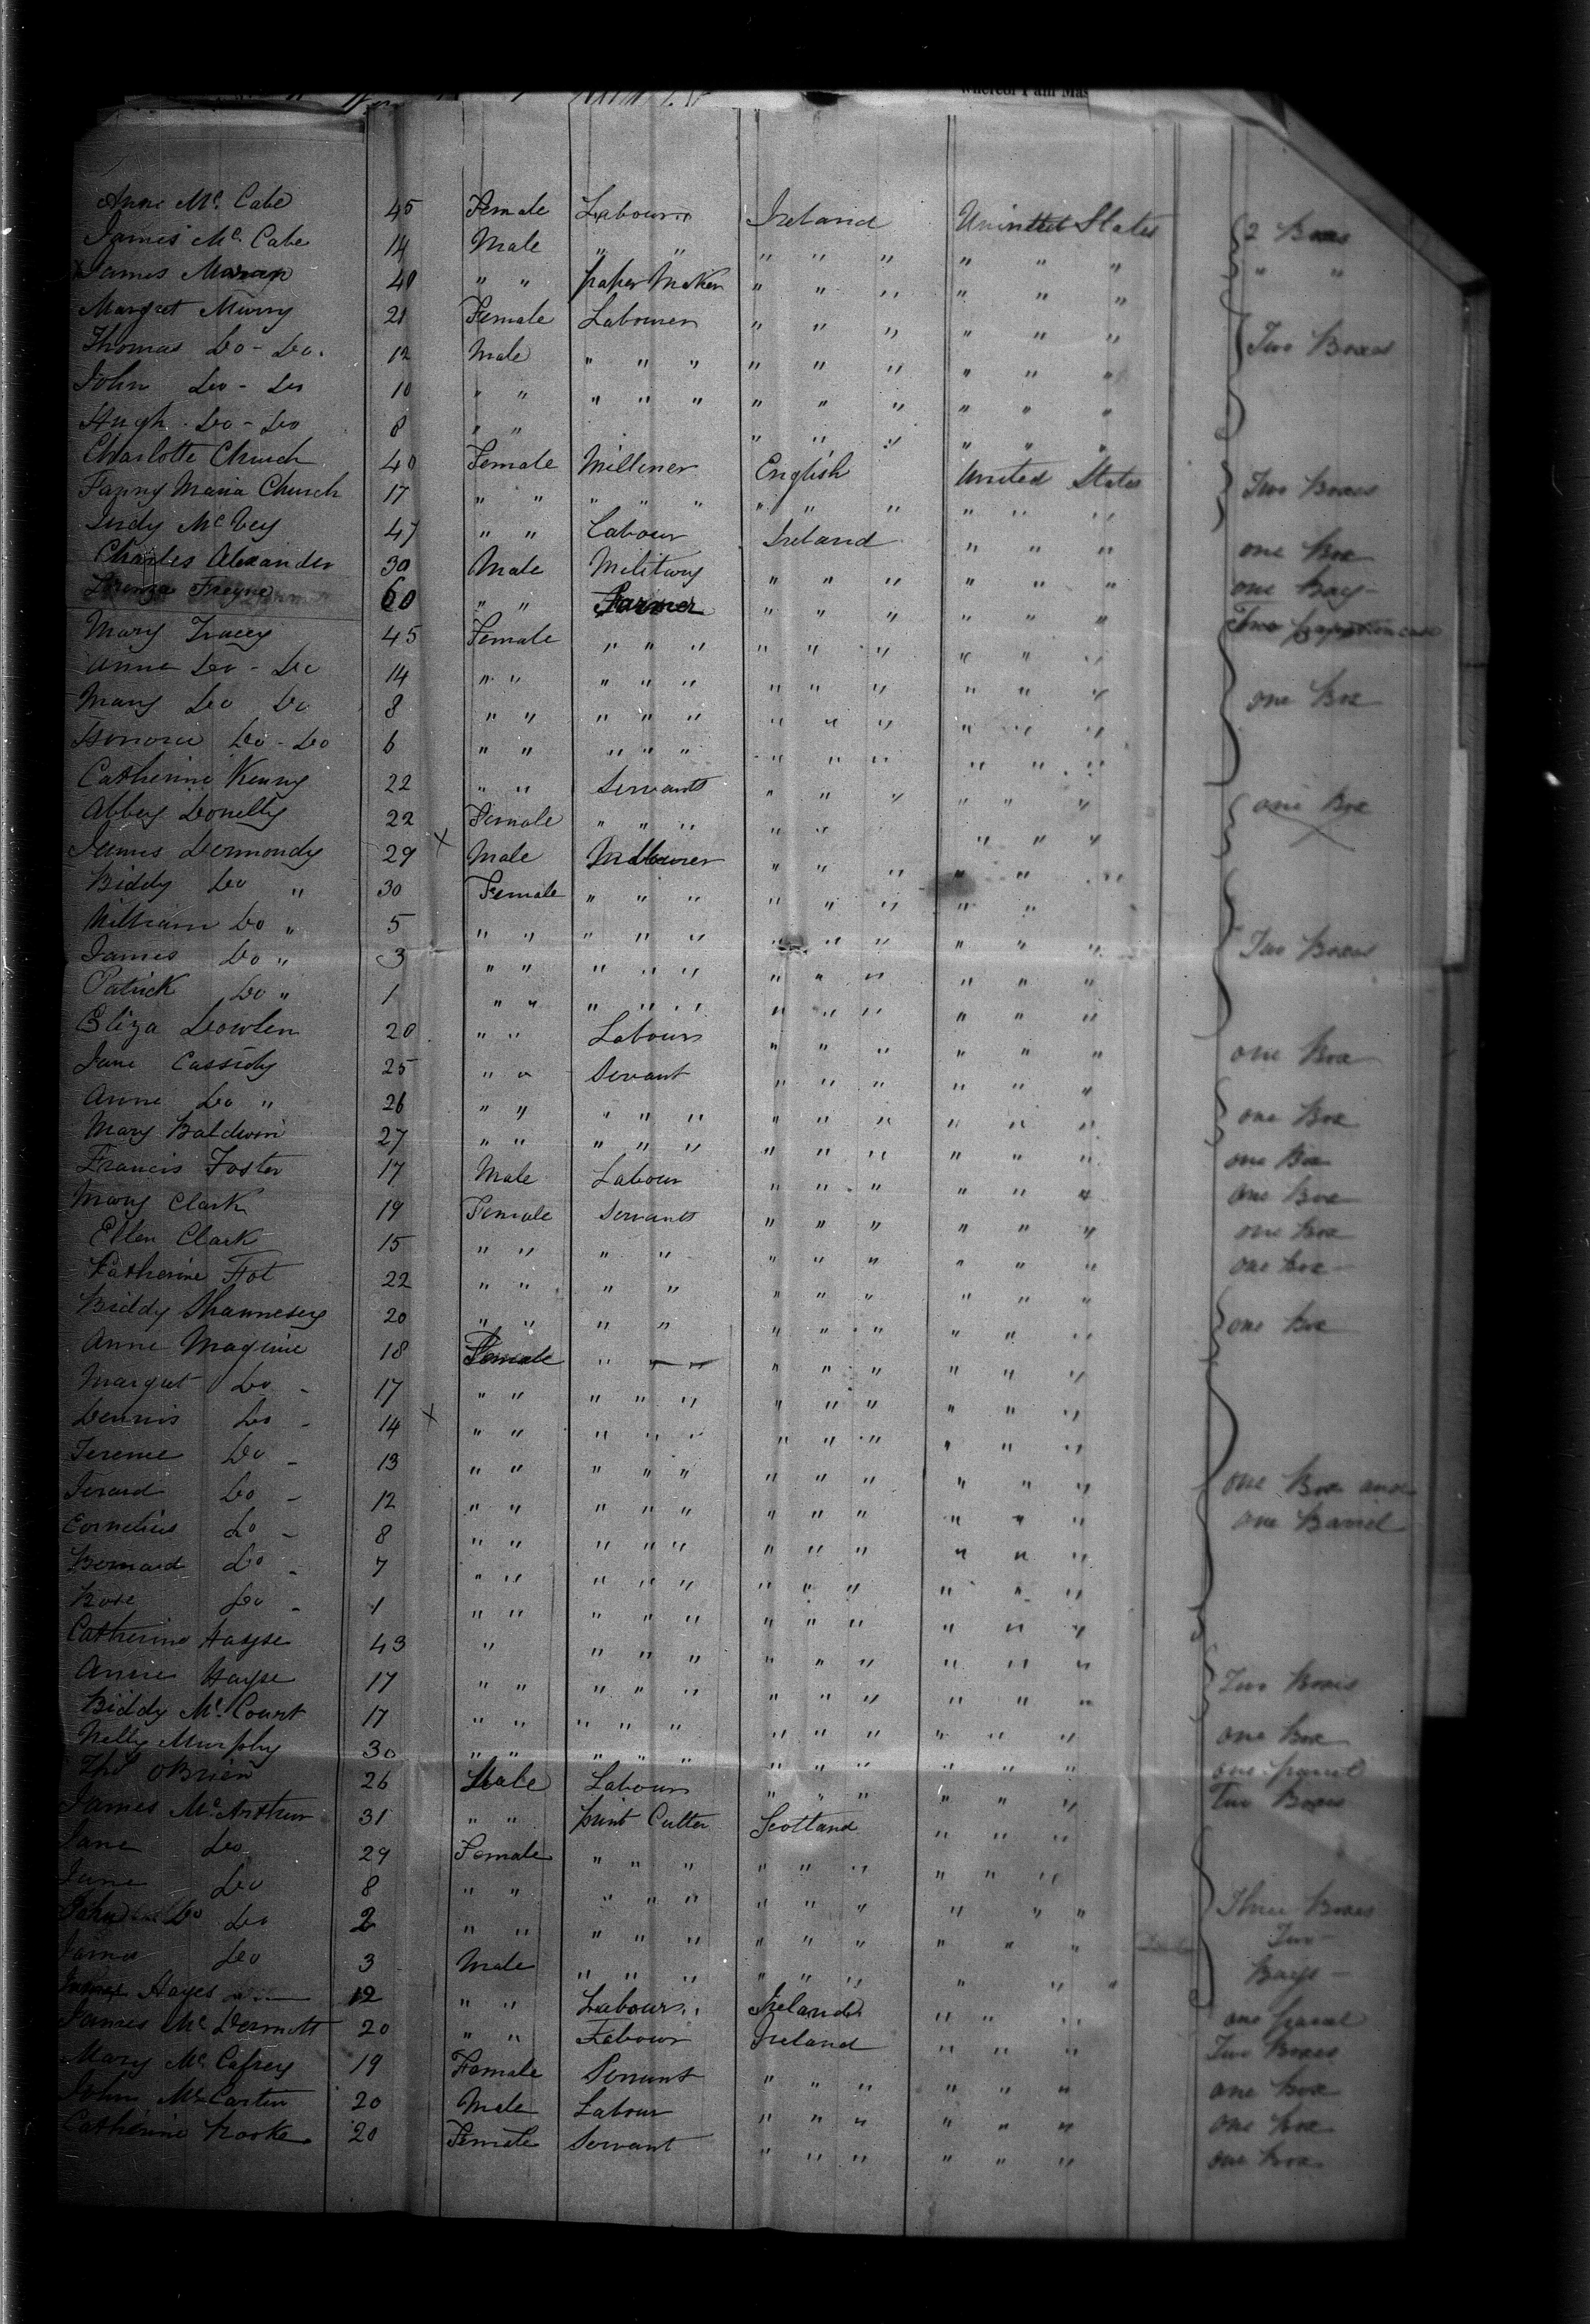 whereof I am Mas
Anne Mc. Cabe 45 Female Labourer Ireland United States 2 Boxes
James Mc. Cabe 14 Male " " " " " " " " " "
James Moran 40 " " paper Maker " " " " " "
Margret Murry 21 Female Labourer " " " " " " Two Boxes
Thomas Do - Do. 12 Male " " " " " " " " "
John Do - Do 10 " " " " " " " " " " "
Hugh Do - Do 8 " " " " " " " "
Charlotte Church 40 Female Milliner English United States
Fanny Maria Church 17 " " " " " " " " " " " Two Boxes
Judy McVey 47 " " Labour Ireland " " " one Box
Charles Alexander 30 Male Military " " " " " " one Bag
Freyne 60 " " Farmer " " " " " " Two
Mary Tracey 45 Female " " " " " " " " "
Anne Do - Do 14 " " " " " " " " " " "
Mary Do Do 8 " " " " " " " " " " " one Box
Honora Do - Do 6 " " " " " " " " " " "
Catherine Kenny 22 " " Servants " " " " " " one Box
Abbey Donelly 22 Female " " " " " " " "
James Dermondy 29 x Male " " " " " "
Biddy Do " 30 Female " " " " " " " "
William Do " 5 " " " " " " " " " " " Two Boxes
James Do " 3 " " " " " " " " " " "
Patrick Do " 1 " " " " " " " " " " "
Eliza Dowlen 20 " " Labour " " " " " " one Box
Jane Cassidy 25 " " Servant " " " " " "
Anne Do " 26 " " " " " " " " " " " one Box
Mary Baldwin 27 " " " " " " " " " " " one Box
Francis Foster 17 Male Labour " " " " " " one Box
Mary Clark 19 Female Servants " " " " " " one Box
Ellen Clark 15 " " " " " " " " " " one Box
Katherine Fot 22 " " " " " " " " " "
Biddy Shannesey 20 " " " " " " " " " " one Box
Anne Maguire 18 Female " " " " " " " " "
Margret Do - 17 " " " " " " " " " " "
Dennis Do - 14 x " " " " " " " " " " "
Terence Do - 13 " " " " " " " " " " "
Do - 12 " " " " " " " " " " " one Box and
Cornelius Do - 8 " " " " " " " " " " " one Barrel
Bernard Do - 7 " " " " " " " " " " "
Rose Do - 1 " " " " " " " " " " "
Catherine Hayse 43 " " " " " " " " " "
Anne Hayse 17 " " " " " " " " " " " Two Boxes
Biddy Mc. Court 17 " " " " " " " " " " " one Box
Nelly Murphy 30 " " " " " " " " " " " one parcel
Ths OBrien 26 Male Labour " " " " " " Two Boxes
James Mc. Arthur 31 " " print Cutter Scotland " " "
Jane Do 29 Female " " " " " " " " "
Jane Do 8 " " " " " " " " " " " Three Boxes
John Do Do 2 " " " " " " " " " " " Two
James Do 3 Male " " " " " " " " " Bags
Hayes 12 " " Labour Ireland " " " one parcel
James Mc Dermott 20 " " Labour Ireland " " " Two Boxes
Mary Mc. Cafrey 19 Female Servant " " " " " " one Box
John Mc Carten 20 Male Labour " " " " " " one box
Catherine Rooke 20 Female Servant " " " " " " one box